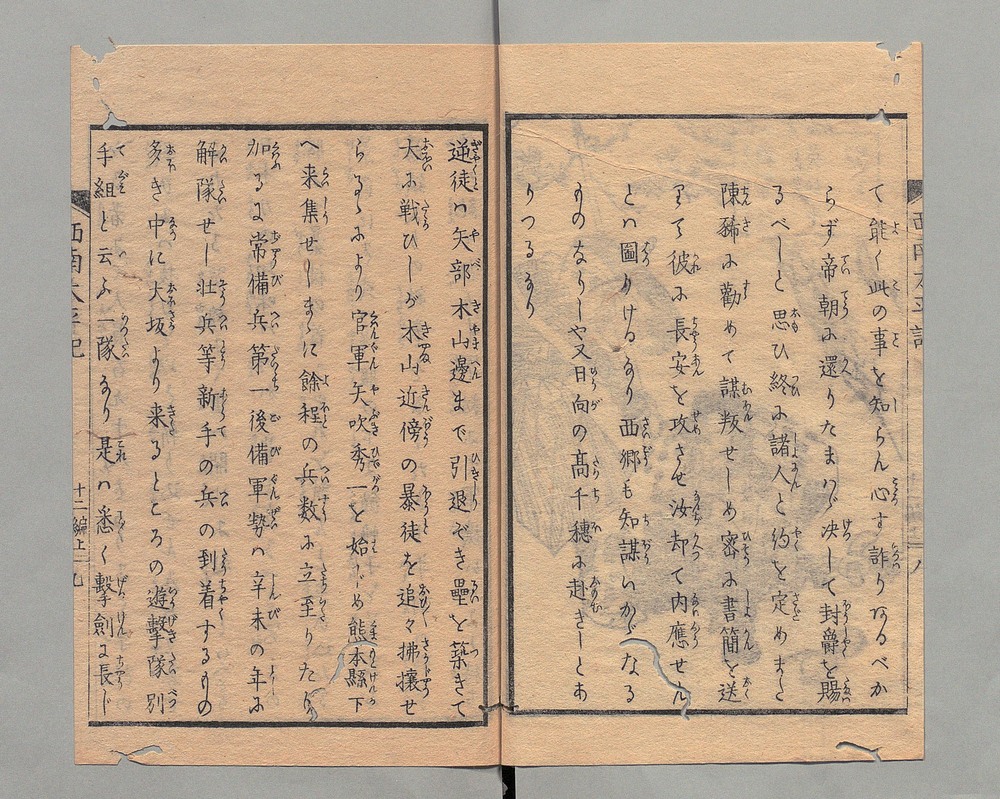 て能く此の事を知らん心す詐りあるべか
らず帝朝に還りたまハヾ决して封爵を賜
るべしと思ひ終に諸人と約を定めまた
陳豨に勸めて謀叛せしめ密に書簡を送
りて彼に長安を攻させ汝却て内應せん
とハ圖りけるなり西郷も知謀いかゞなる
ものなりしや又日向の高千穗に赴きしとあ
りつるなり
逆徒ハ矢部木山邊まで引退ぞき壘を築きて
大に戰ひしが木山近傍の暴徒を追々拂攘せ
らるゝにより官軍矢吹秀一を始じめ熊本縣下
へ来集せしまゝに餘程の兵数に立至りたり
加るに常備兵第一後備軍勢ハ辛未の年に
解隊せし壮兵等新手の兵の到着するもの
多き中に大坂より来るところの遊擊隊別
手組と云ふ一隊なり是ハ悉く擊劍に長じ
西南太平記
十二編上 九